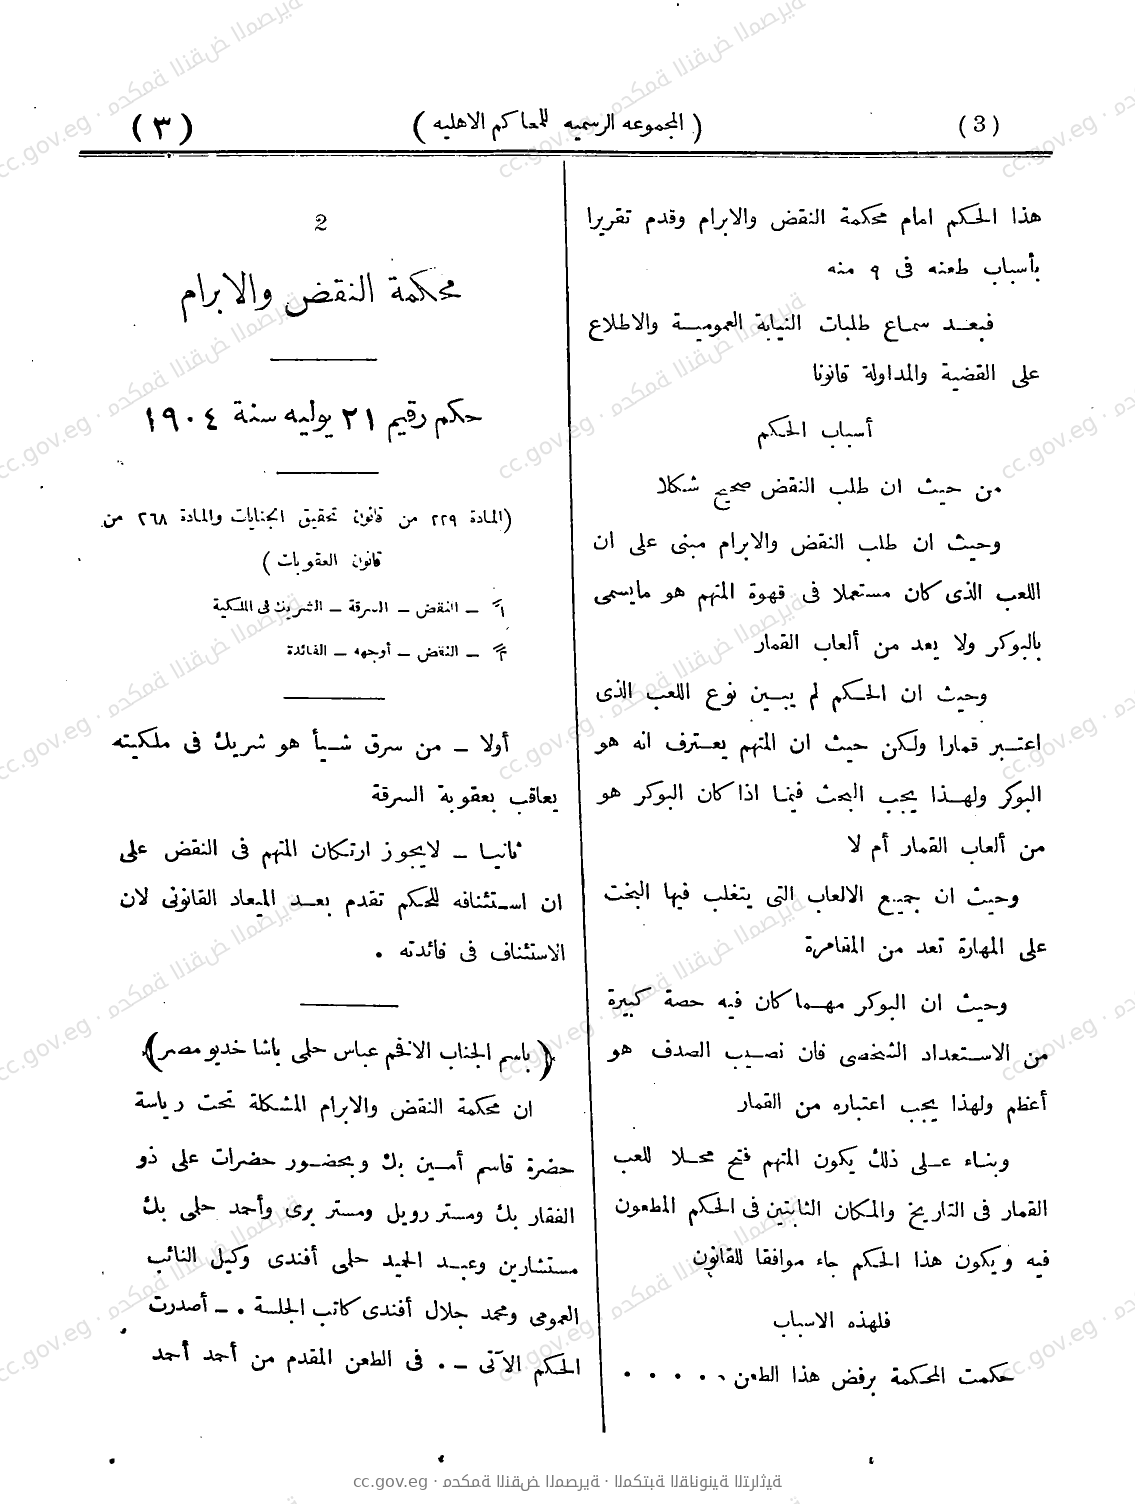 (3) (المجموعه الرسميه للمحاكم الاهليه) (٣)
هذا الحكم امام محكمة النقض والابرام وقدم تقريرا
بأسباب طعنه فى ٩ منه
فبعد سماع طلبات النيابة العمومية والاطلاع
على القضية والمداولة قانونا
أسباب الحكم
من حيث ان طلب النقض صحيح شكلا
وحيث ان طلب النقض والابرام مبنى على ان
اللعب الذى كان مستعملا فى قهوة المتهم هو مايسمى
بالبوكر ولا يعد من ألعاب القمار
وحيث ان الحكم لم يبين نوع اللعب الذى
اعتبر قمارا ولكن حيث ان المتهم يعترف انه هو
البوكر ولهذا يجب البحث فيما اذا كان البوكر هو
من ألعاب القمار أم لا
وحيث ان جميع الالعاب التى يتغلب فيها البخت
على المهارة تعد من المقامرة
وحيث ان البوكر مهما كان فيه حصة كبيرة
من الاستعداد الشخصى فان نصيب الصدف هو
أعظم ولهذا يجب اعتباره من القمار
وبناء على ذلك يكون المتهم فتح محلا للعب
القمار فى التاريخ والمكان الثابتين فى الحكم المطعون
فيه ويكون هذا الحكم جاء موافقا للقانون
فلهذه الاسباب
حكمت المحكمة برفض هذا الطعن . . . . . .
2
محكمة النقض والابرام
حكم رقيم ٢١ يوليه سنة ١٩٠٤
(المادة ٢٢٩ من قانون تحقيق الجنايات والمادة ٢٦٨ من
قانون العقوبات)
١ – النقض – السرقة – الشريك فى الملكية
٢ – النقض – أوجهه – الفائدة
أولا – من سرق شيأ هو شريك فى ملكيته
يعاقب بعقوبة السرقة
ثانيا – لايجوز ارتكان المتهم فى النقض على
ان استئنافه للحكم تقدم بعد الميعاد القانونى لان
الاستئناف فى فائدته .
(باسم الجناب الافخم عباس حلمى باشا خديو مصر)
ان محكمة النقض والابرام المشكلة تحت رياسة
حضرة قاسم أمين بك وبحضور حضرات على ذو
الفقار بك ومستر رويل ومستر برى وأحمد حلمى بك
مستشارين وعبد الحميد حلمى أفندى وكيل النائب
العمومى ومحمد جلال أفندى كاتب الجلسة . – أصدرت
الحكم الآتى – . فى الطعن المقدم من أحمد أحمد
cc.gov.eg · محكمة النقض المصرية · المكتبة القانونية التراثية